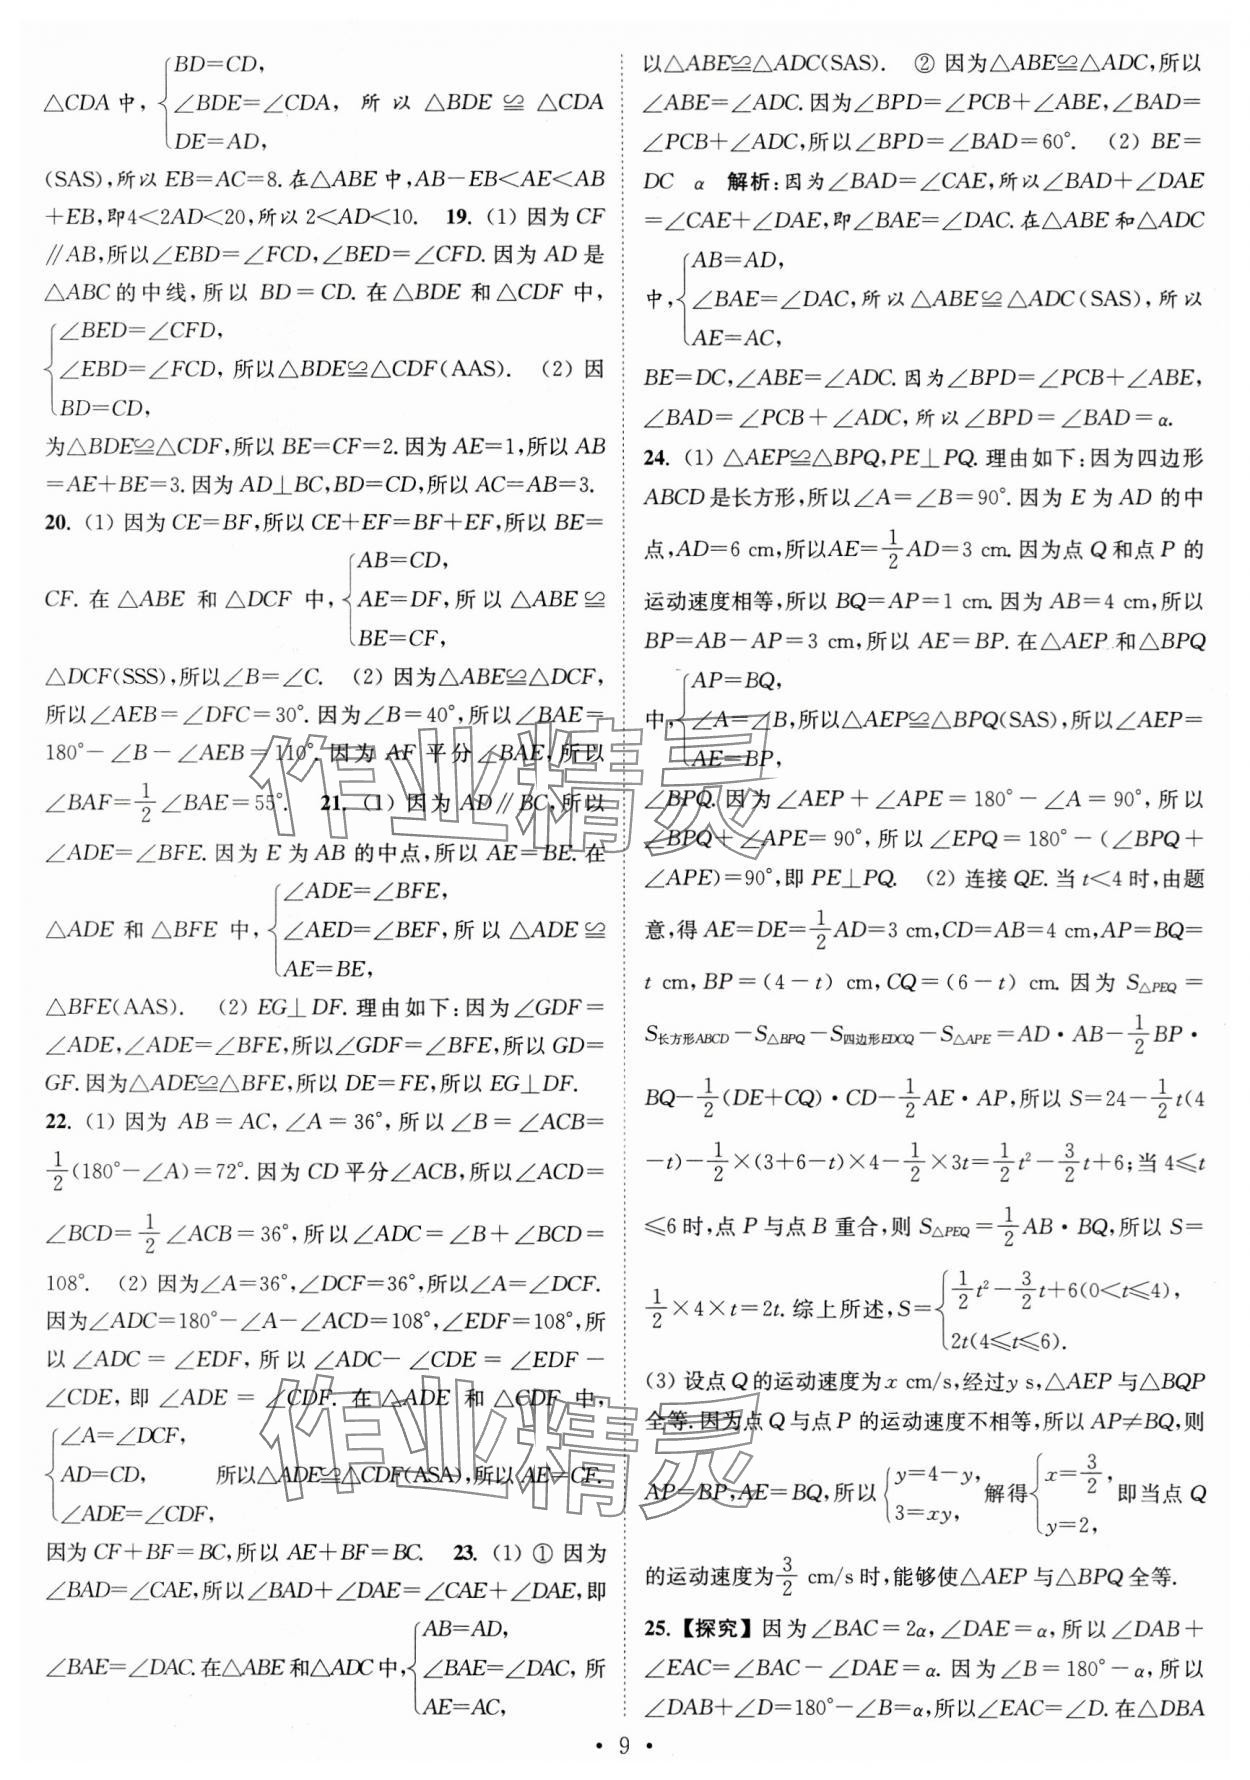 BD=CD,
△CDA中,∠BDE=∠CDA, 所以△BDE≌△CDA
DE=AD,
(SAS),所以EB=AC=8.在△ABE中,AB-EB<AE<AB
+EB,即4<2AD<20,所以2<AD<10. 19.(1)因为CF
∥AB,所以∠EBD=∠FCD,∠BED=∠CFD.因为AD是
△ABC的中线,所以BD=CD.在△BDE和△CDF中,
∠BED=∠CFD,
∠EBD=∠FCD,所以△BDE≌△CDF(AAS). (2)因
BD=CD,
为△BDE≌△CDF,所以BE=CF=2.因为AE=1,所以AB
=AE+BE=3.因为AD⊥BC,BD=CD,所以AC=AB=3.
20.(1)因为CE=BF,所以CE+EF=BF+EF,所以BE=
AB=CD,
CF.在△ABE和△DCF中,AE=DF,所以△ABE≌
BE=CF,
△DCF(SSS),所以∠B=∠C. (2)因为△ABE≌△DCF,
所以∠AEB=∠DFC=30°.因为∠B=40°,所以∠BAE=
180°-∠B-∠AEB=110°.因为AF平分∠BAE,所以
∠BAF=1/2∠BAE=55°. 21.(1)因为AD∥BC,所以
∠ADE=∠BFE.因为E为AB的中点,所以AE=BE.在
∠ADE=∠BFE,
△ADE和△BFE中,∠AED=∠BEF,所以△ADE≌
AE=BE,
△BFE(AAS). (2)EG⊥DF.理由如下:因为∠GDF=
∠ADE,∠ADE=∠BFE,所以∠GDF=∠BFE,所以GD=
GF.因为△ADE≌△BFE,所以DE=FE,所以EG⊥DF.
22.(1)因为AB=AC,∠A=36°,所以∠B=∠ACB=
1/2(180°-∠A)=72°.因为CD平分∠ACB,所以∠ACD=
∠BCD=1/2∠ACB=36°,所以∠ADC=∠B+∠BCD=
108°. (2)因为∠A=36°,∠DCF=36°,所以∠A=∠DCF.
因为∠ADC=180°-∠A-∠ACD=108°,∠EDF=108°,所
以∠ADC=∠EDF,所以∠ADC-∠CDE=∠EDF-
∠CDE,即∠ADE=∠CDF.在△ADE和△CDF中,
∠A=∠DCF,
AD=CD, 所以△ADE≌△CDF(ASA),所以AE=CF.
∠ADE=∠CDF,
因为CF+BF=BC,所以AE+BF=BC. 23.(1)①因为
∠BAD=∠CAE,所以∠BAD+∠DAE=∠CAE+∠DAE,即
AB=AD,
∠BAE=∠DAC.在△ABE和△ADC中,∠BAE=∠DAC,所
AE=AC,
以△ABE≌△ADC(SAS). ②因为△ABE≌△ADC,所以
∠ABE=∠ADC.因为∠BPD=∠PCB+∠ABE,∠BAD=
∠PCB+∠ADC,所以∠BPD=∠BAD=60°. (2)BE=
DC α 解析:因为∠BAD=∠CAE,所以∠BAD+∠DAE
=∠CAE+∠DAE,即∠BAE=∠DAC.在△ABE和△ADC
AB=AD,
中,∠BAE=∠DAC,所以△ABE≌△ADC(SAS),所以
AE=AC,
BE=DC,∠ABE=∠ADC.因为∠BPD=∠PCB+∠ABE,
∠BAD=∠PCB+∠ADC,所以∠BPD=∠BAD=α.
24.(1)△AEP≌△BPQ,PE⊥PQ.理由如下:因为四边形
ABCD是长方形,所以∠A=∠B=90°.因为E为AD的中
点,AD=6 cm,所以AE=1/2AD=3 cm.因为点Q和点P的
运动速度相等,所以BQ=AP=1 cm.因为AB=4 cm,所以
BP=AB-AP=3 cm,所以AE=BP.在△AEP和△BPQ
AP=BQ,
中,∠A=∠B,所以△AEP≌△BPQ(SAS),所以∠AEP=
AE=BP,
∠BPQ.因为∠AEP+∠APE=180°-∠A=90°,所以
∠BPQ+∠APE=90°,所以∠EPQ=180°-(∠BPQ+
∠APE)=90°,即PE⊥PQ. (2)连接QE.当t<4时,由题
意,得AE=DE=1/2AD=3 cm,CD=AB=4 cm,AP=BQ=
t cm,BP=(4-t) cm,CQ=(6-t) cm.因为S△PEQ=
S长方形ABCD-S△BPQ-S四边形EDCQ-S△APE=AD·AB-1/2BP·
BQ-1/2(DE+CQ)·CD-1/2AE·AP,所以S=24-1/2t(4
-t)-1/2×(3+6-t)×4-1/2×3t=1/2t²-3/2t+6;当4≤t
≤6时,点P与点B重合,则S△PEQ=1/2AB·BQ,所以S=
1/2×4×t=2t.综上所述,S={1/2t²-3/2t+6(0<t≤4),
2t(4≤t≤6).
(3)设点Q的运动速度为x cm/s,经过y s,△AEP与△BQP
全等.因为点Q与点P的运动速度不相等,所以AP≠BQ,则
AP=BP,AE=BQ,所以{y=4-y, 3=xy, 解得{x=3/2, y=2, 即当点Q
的运动速度为3/2 cm/s时,能够使△AEP与△BPQ全等.
25.【探究】因为∠BAC=2α,∠DAE=α,所以∠DAB+
∠EAC=∠BAC-∠DAE=α.因为∠B=180°-α,所以
∠DAB+∠D=180°-∠B=α,所以∠EAC=∠D.在△DBA
· 9 ·
作业精灵
作业精灵